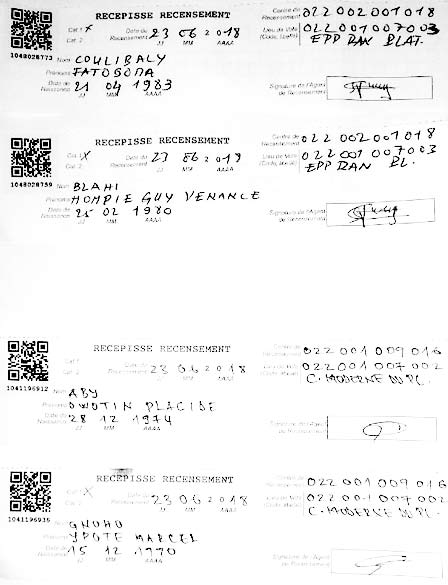 RECEPISSE RECENSEMENT
Cat 1 X Date de Recensement 23 06 2018
Cat. 2 JJ MM AAAA
Centre de Recensement 022 002 001 018
Lieu de Vote (Code, Localité) 022 001 007 003
EPP BAN BLAT.
1048028773
Nom COULIBALY
Prénoms FATOGOMA
Date de Naissance 21 04 1983
JJ MM AAAA
Signature de l'Agent de Recensement
RECEPISSE RECENSEMENT
Cat 1 X Date de Recensement 23 06 2018
Cat. 2 JJ MM AAAA
Centre de Recensement 022 002 001 018
Lieu de Vote 022 001 007 003
EPP BAN BL.
1048028759
Nom BLAHI
Prénoms HOMPIE GUY VENANCE
Date de Naissance 25 02 1980
JJ MM AAAA
Signature de l'Agent de Recensement
RECEPISSE RECENSEMENT
Cat 1 Date de Recensement 23 06 2018
Cat. 2 JJ MM AAAA
Centre de Recensement 022 001 009 016
022 001 007 002
C. MODERNE DU PL.
1041196912
Nom ABY
Prénoms OWOTIN PLACIDE
Date de Naissance 28 12 1974
JJ MM AAAA
Signature de l'Agent de Recensement
RECEPISSE RECENSEMENT
Cat 1 X Date de Recensement 23 06 2018
Cat. 2 JJ MM AAAA
Centre de Recensement 022 001 009 016
022 001 007 002
C. MODERNE DU PL.
1041196935
Nom GNOHO
Prénoms YPOTE MARCEL
Date de Naissance 15 12 1970
JJ MM AAAA
Signature de l'Agent de Recensement